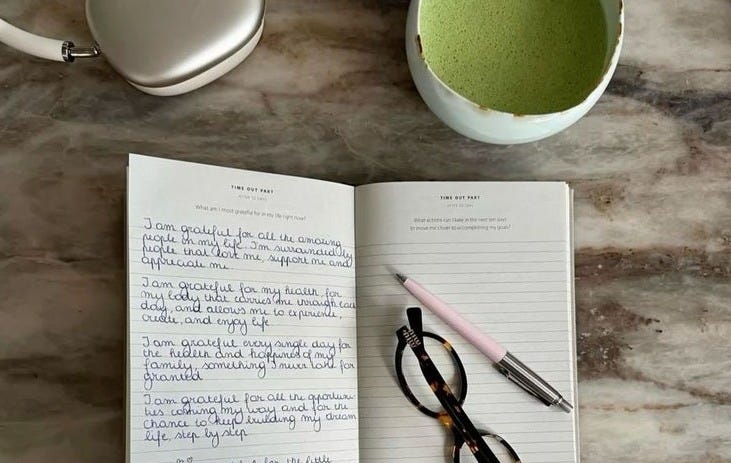 TIME OUT PART
AFTER 30 DAYS
What am I most grateful for in my life right now?
I am grateful for all the amazing
people in my life. I'm surrounded by
people that love me, support me and
appreciate me
I am grateful for my health, for
my body that carries me through each
day, and allows me to experience,
create, and enjoy life
I am grateful every single day for
the health and happiness of my
family, something I never take for
granted
I am grateful for all the opportuni-
ties coming my way and for the
chance to keep building my dream
life, step by step
for the little
TIME OUT PART
What actions can I take in the next ten days
to move me closer to accomplishing my goals?
miu
miu